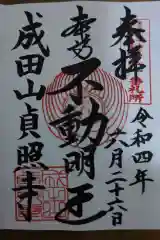 奉拝
令和四年
六月二十六日
不動明王
成田山貞照寺